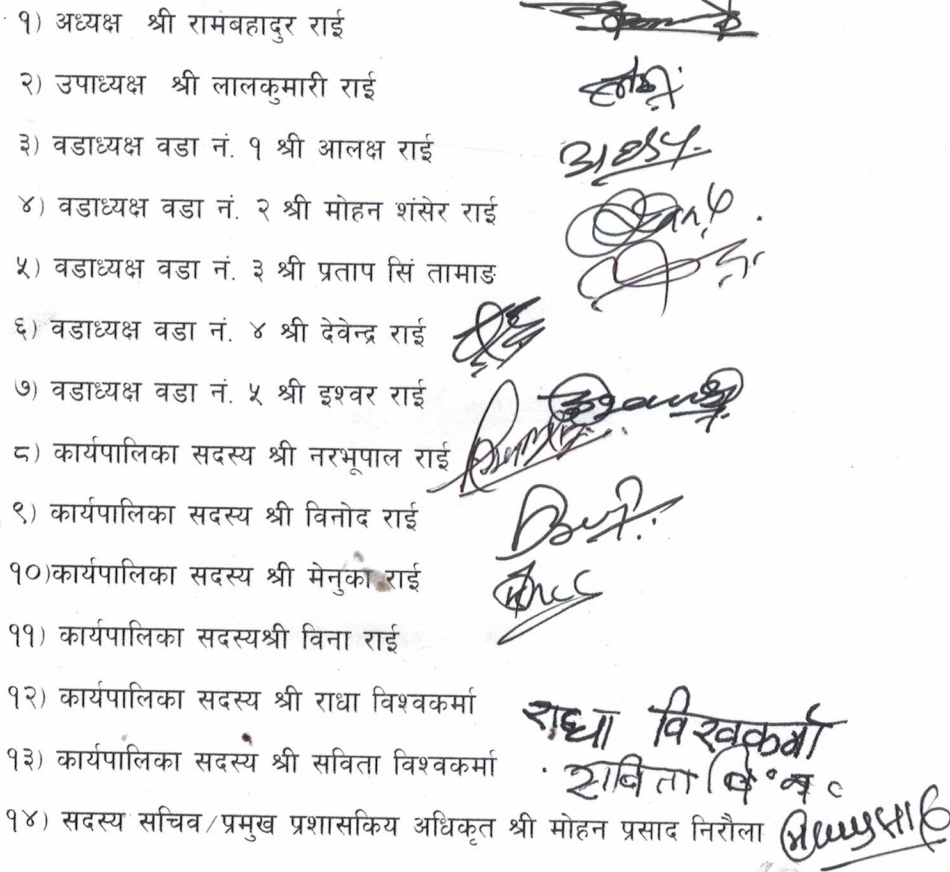 १) अध्यक्ष श्री रामबहादुर राई
२) उपाध्यक्ष श्री लालकुमारी राई
३) वडाध्यक्ष वडा नं. १ श्री आलक्ष राई
४) वडाध्यक्ष वडा नं. २ श्री मोहन शंसेर राई
५) वडाध्यक्ष वडा नं. ३ श्री प्रताप सिं तामाङ
६) वडाध्यक्ष वडा नं. ४ श्री देवेन्द्र राई
७) वडाध्यक्ष वडा नं. ५ श्री इश्वर राई
८) कार्यपालिका सदस्य श्री नरभूपाल राई
९) कार्यपालिका सदस्य श्री विनोद राई
१०)कार्यपालिका सदस्य श्री मेनुका राई
११) कार्यपालिका सदस्यश्री विना राई
१२) कार्यपालिका सदस्य श्री राधा विश्वकर्मा राधा विश्वकर्मा
१३) कार्यपालिका सदस्य श्री सविता विश्वकर्मा सविता
१४) सदस्य सचिव/प्रमुख प्रशासकिय अधिकृत श्री मोहन प्रसाद निरौला